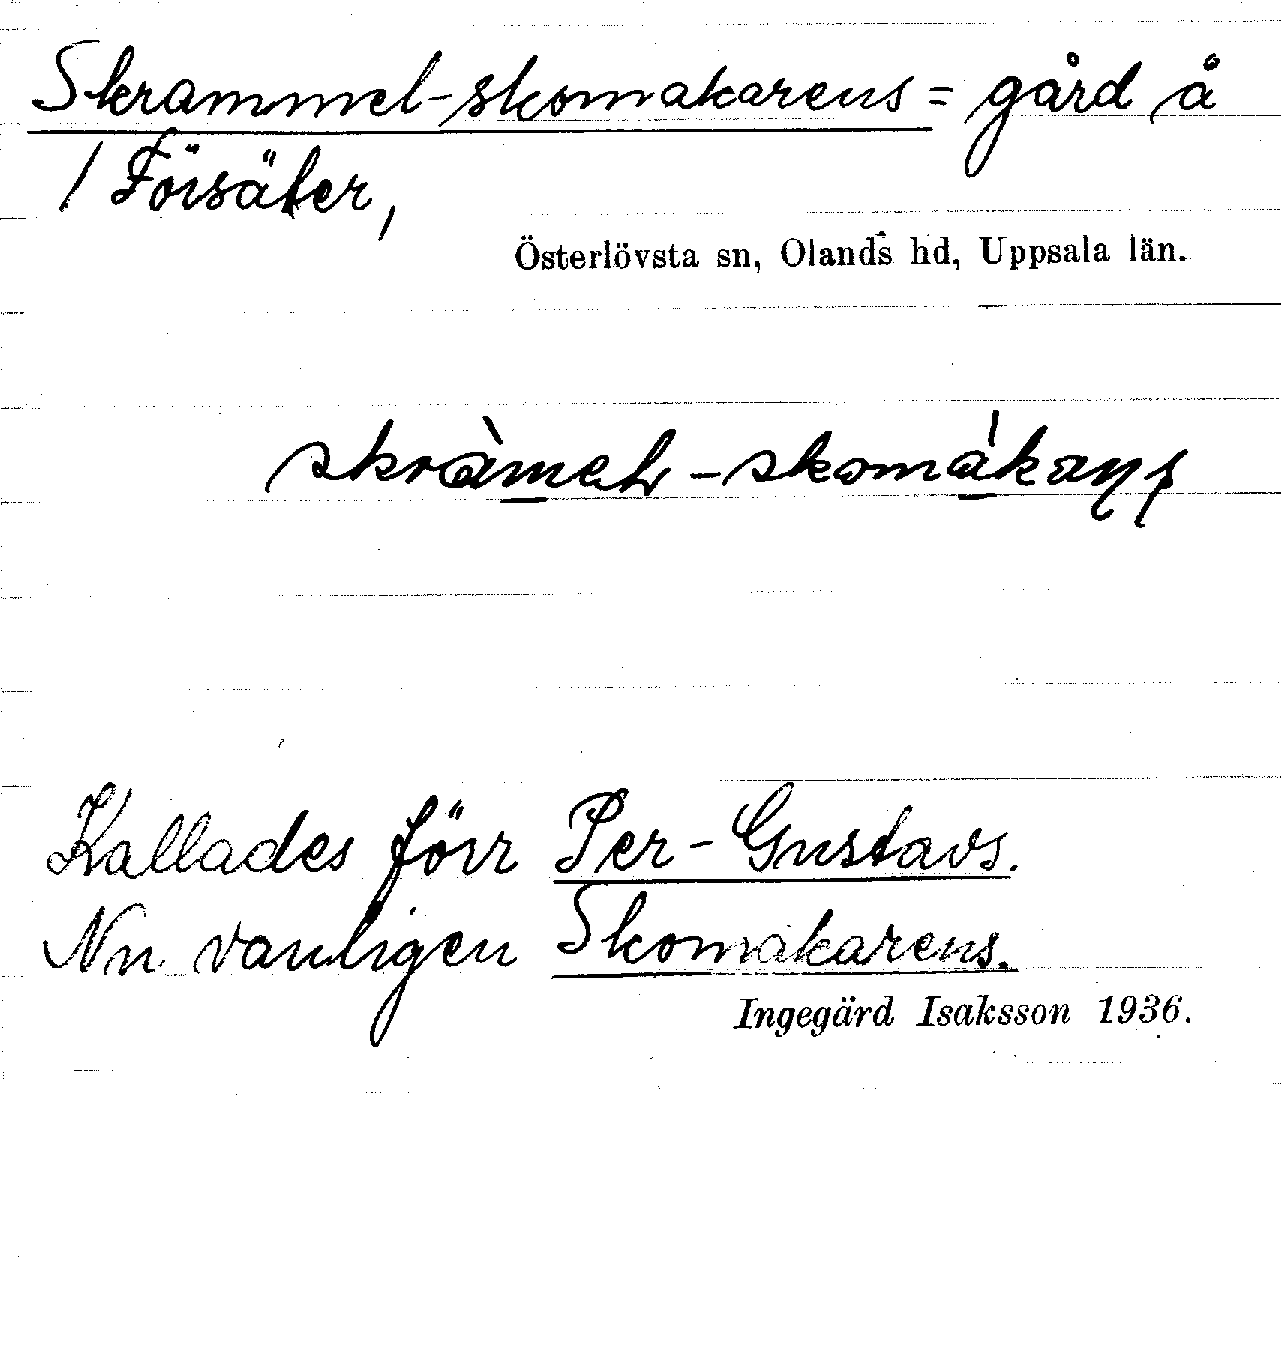 Skrammel-skomakarens = gård å
/ Försäter,
Österlövsta sn, Olands hd, Uppsala län.
skràmel-skomákaṇṣ
Kallades förr Per-Gustavs.
Nu vanligen Skomakarens.
Ingegärd Isaksson 1936.